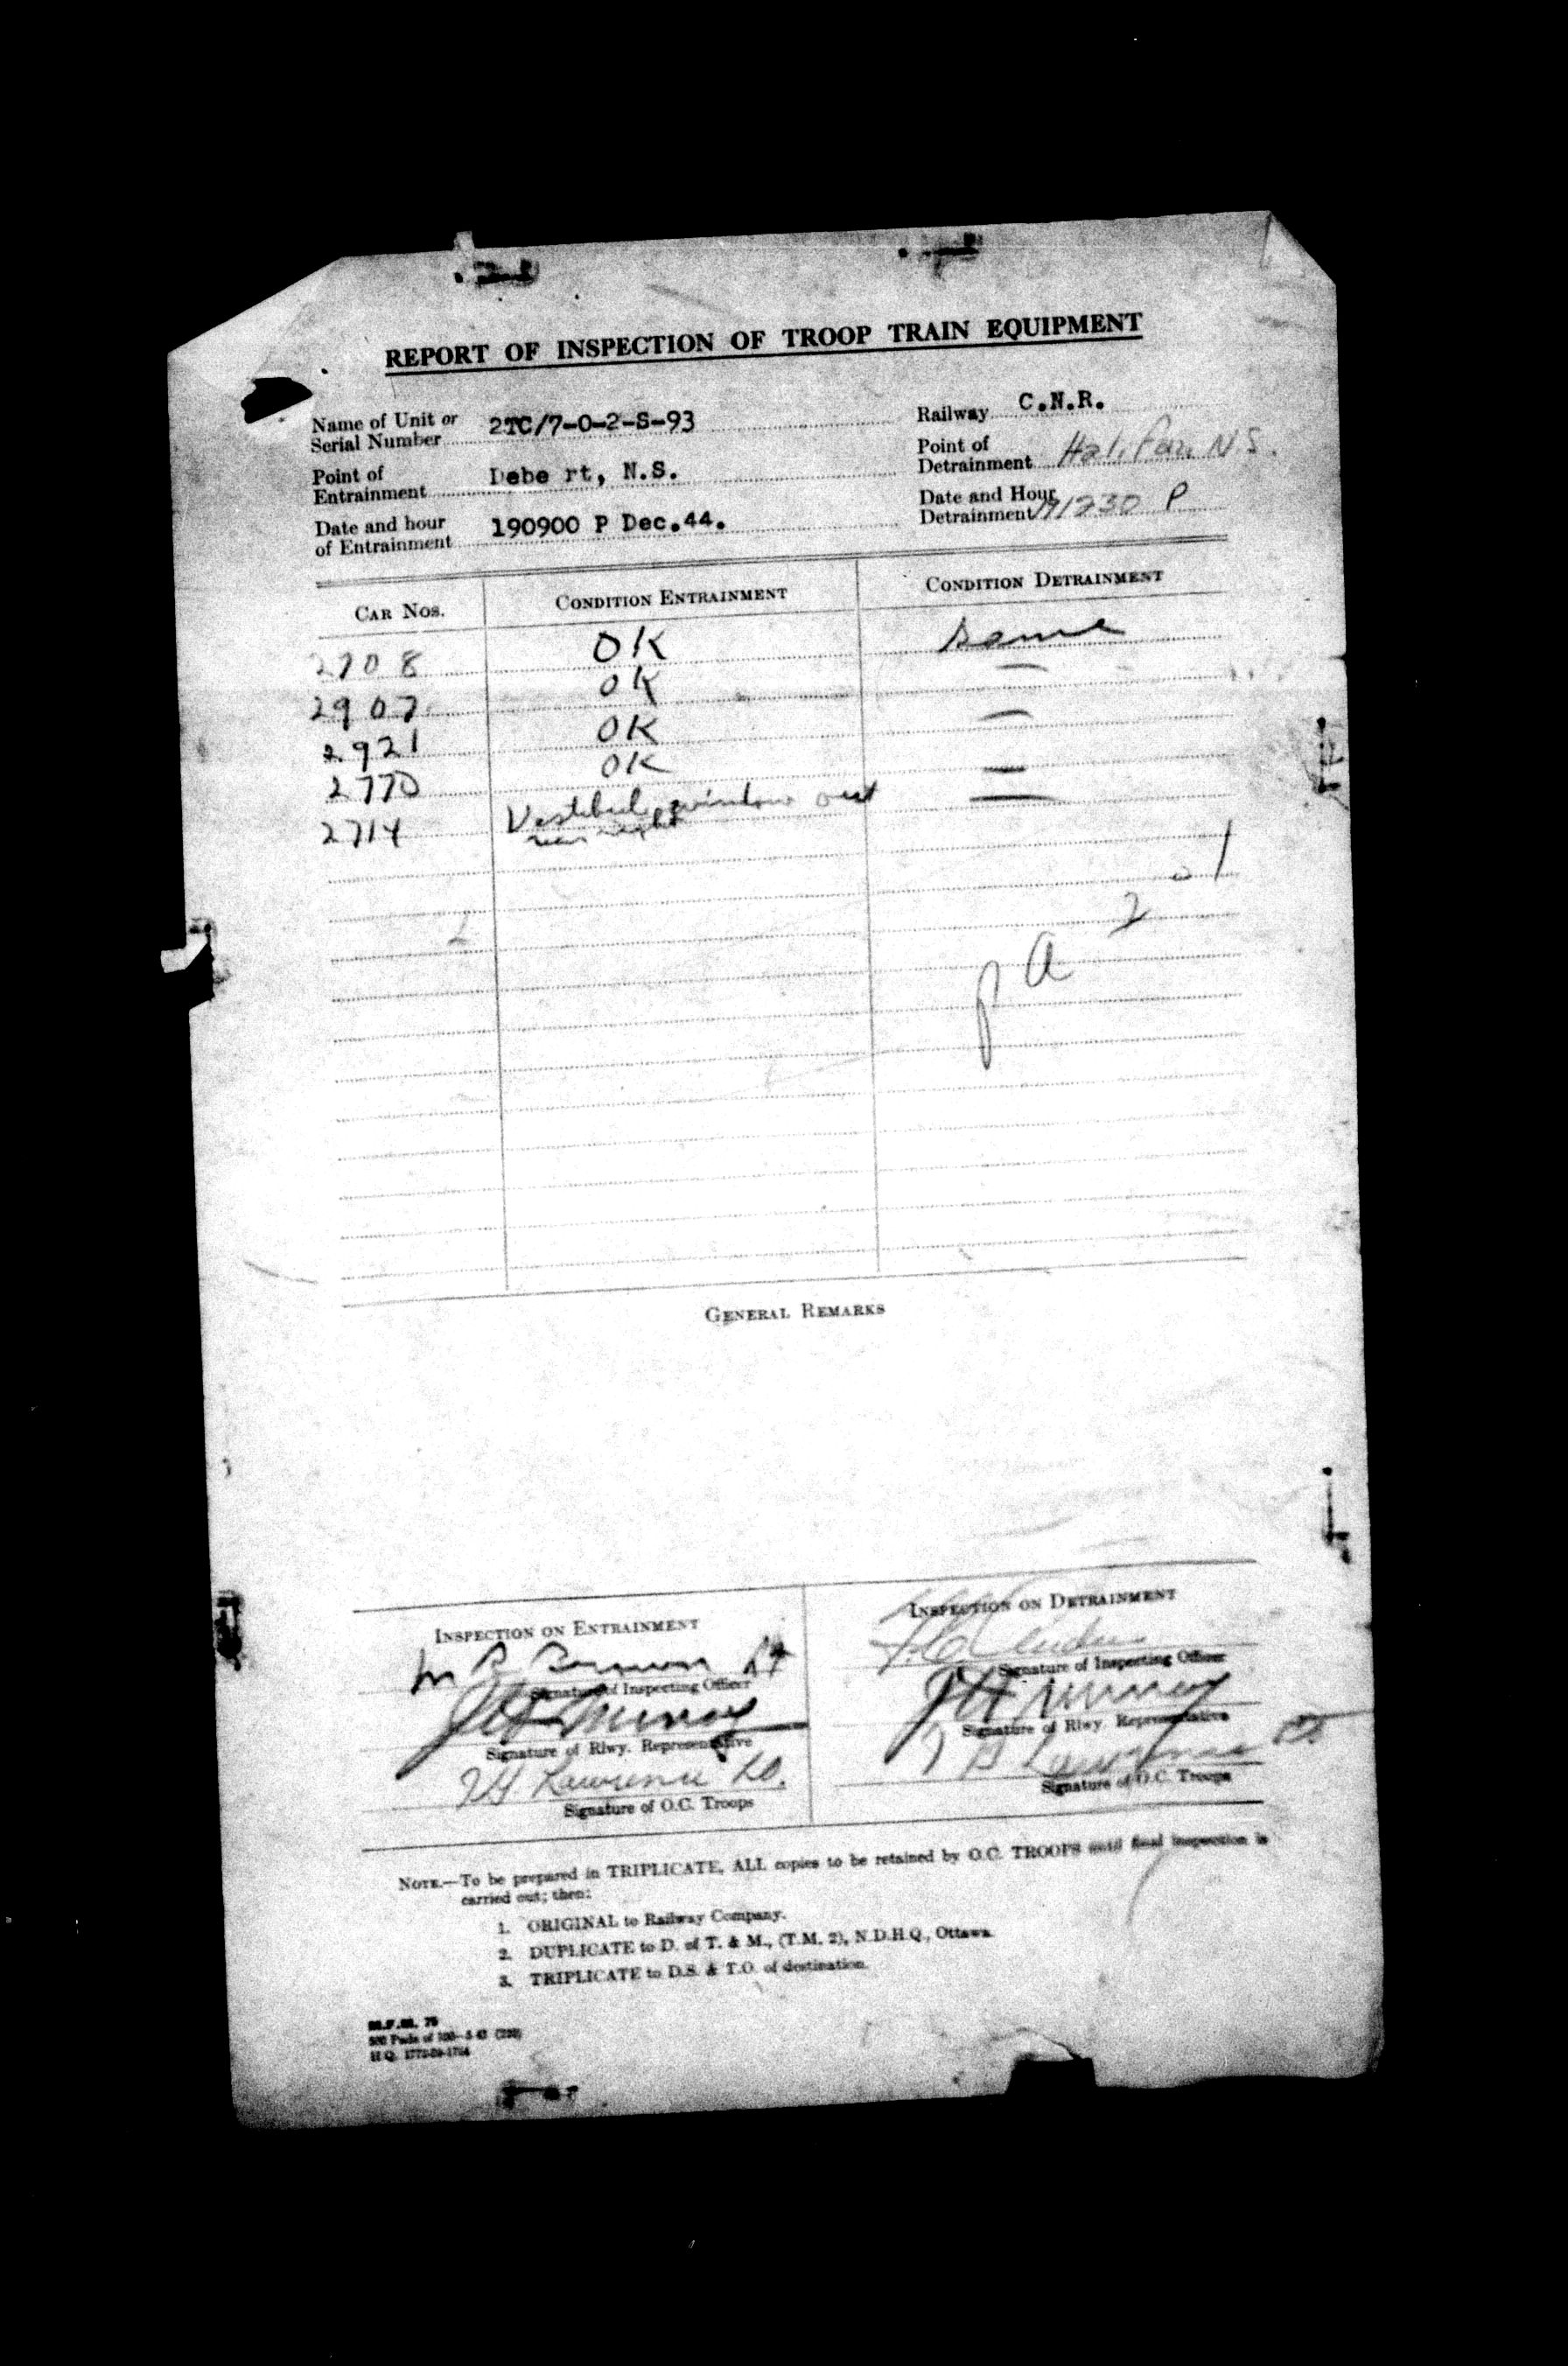 REPORT OF INSPECTION OF TROOP TRAIN EQUIPMENT
Name of Unit or Serial Number 2TC/7-O-2-S-93
Railway C.N.R.
Point of Entrainment Debe rt, N.S.
Point of Detrainment Halifax N.S.
Date and hour of Entrainment 190900 P Dec.44.
Date and Hour Detrainment 191230 P
CAR NOS. CONDITION ENTRAINMENT CONDITION DETRAINMENT
2708 OK Same
2907 OK —
2921 OK —
2770 OK —
2714 Vestibule window out —
rear right
1
2
a
p
GENERAL REMARKS
INSPECTION ON ENTRAINMENT
Lt
Signature of Inspecting Officer
Murray
Signature of Rlwy. Representative
Lawrence Lt.
Signature of O.C. Troops
INSPECTION ON DETRAINMENT
Signature of Inspecting Officer
Murray
Signature of Rlwy. Representative
Lawrence
Signature of O.C. Troops
NOTE.—To be prepared in TRIPLICATE, ALL copies to be retained by O.C. TROOPS until final inspection is
carried out; then:
1. ORIGINAL to Railway Company.
2. DUPLICATE to D. of T. & M., (T.M. 2), N.D.H.Q., Ottawa.
3. TRIPLICATE to D.S. & T.O. of destination.
M.F.M. 75
500 Pads of 100
H.Q.